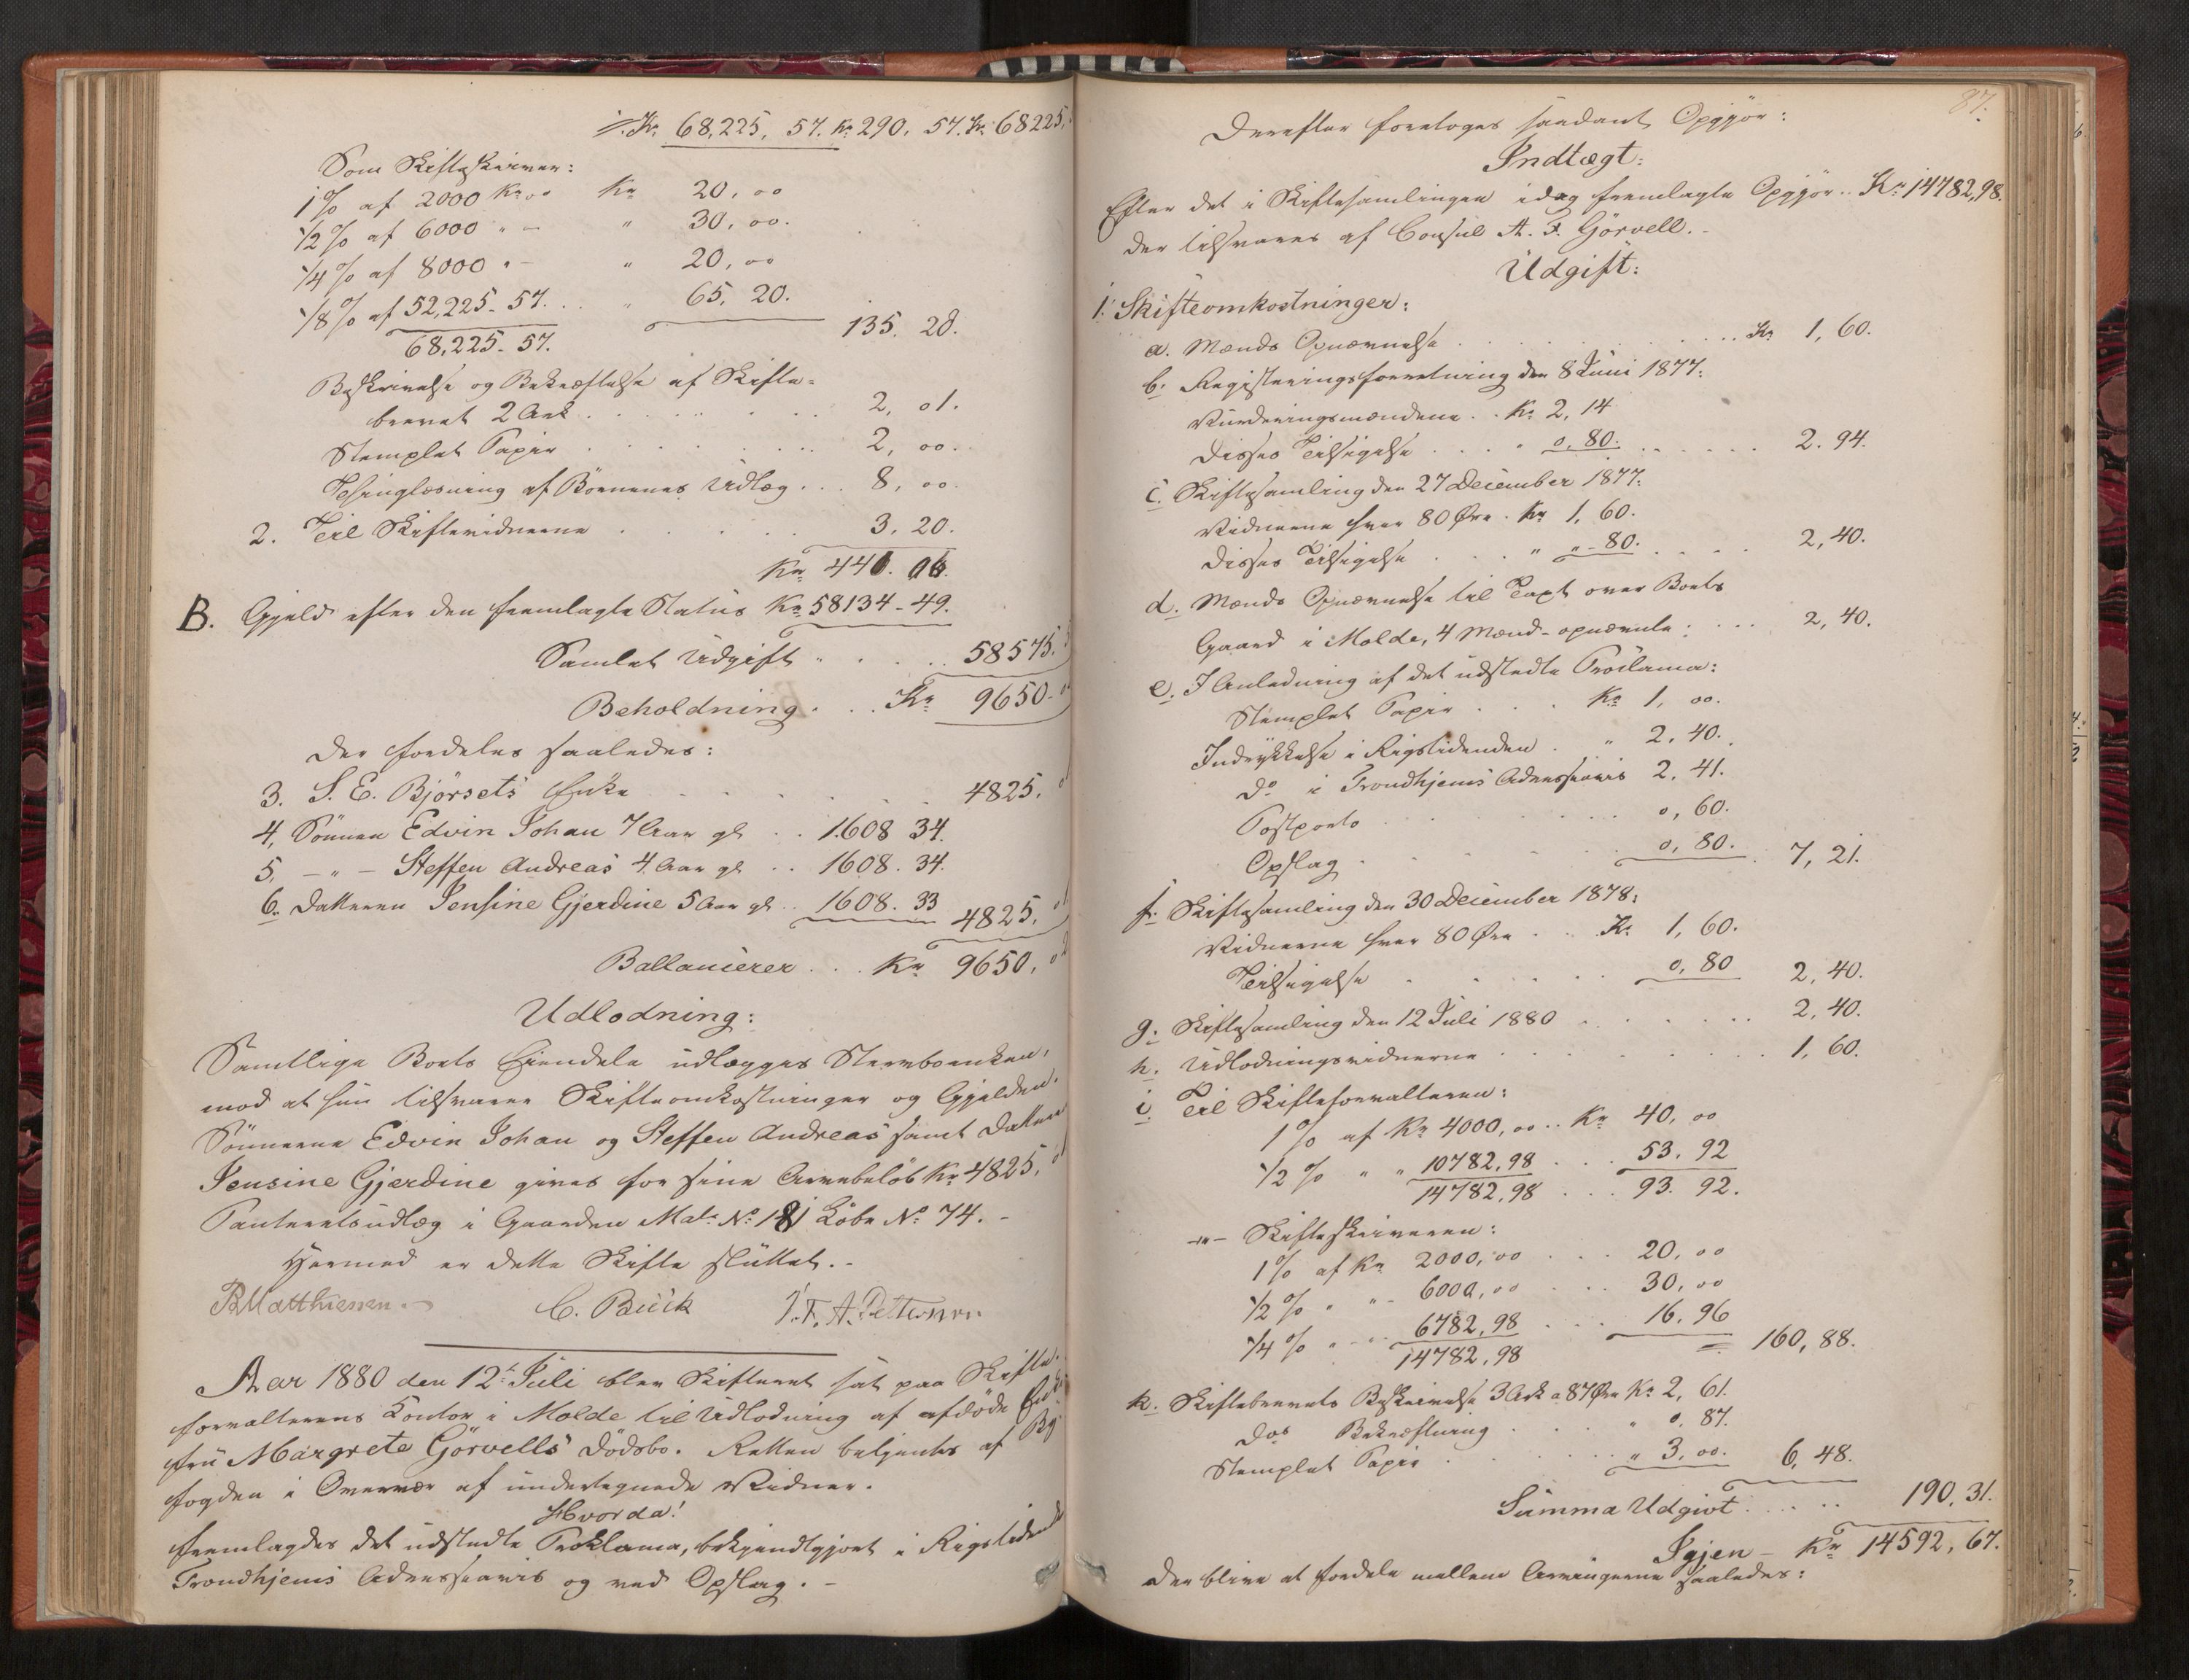 ÷. Kr 68,225, 57. Kr 290, 57. Kr 68225,
Som Skifteskriver:
1 % af 2000 Kr oo Kr 20, oo
1/2 % af 6000 " - " 30, oo.
1/4 % af 8000 " - " 20, oo
1/8 % af 52,225-57. . " 65, 20.
135. 20.
68,225-57.
Beskrivelse og Bekræftelse af Skifte-
brevet 2 Ark . . . . . . . 2, 01.
Stemplet Papir . . . . . . . 2, oo.
Thinglæsning af Börnenes Udlæg . . 8, oo.
2. Til Skiftevidnerne . . . . 3, 20.
Kr 440. 06.
B. Gjæld efter den fremlagte Status Kr 58134-49.
Samlet Udgift . . . . 58575.
Beholdning . . . Kr 9650.
der fordeles saaledes:
3. S. E. Björsets Enke . . . . . . 4825,
4, Sönnen Edvin Johan 7 Aar gl . . 1608 34.
5, - " - Steffen Andreas 4 Aar gl . . 1608. 34.
6. Datteren Jensine Gjerdine 5 Aar gl . . 1608. 33
4825,
Ballancerer . . . Kr 9650,
Udlodning:
Samtlige Boets Eiendele udlægges Stervboenken,
mod at hun tilsvarer Skifteomkostninger og Gjælden.
Sönnerne Edvin Johan og Steffen Andreas samt Datteren
Jensine Gjerdine gives for sine Arvebelöb Kr 4825,
Panteretsudlæg i Gaarden Matr No 181 Löbe No 74. -
Hermed er dette Skifte sluttet. -
B Matthiesen. C. Buck J. F. A. Pettersen
Aar 1880 den 12te Juli blev Skifteret sat paa Skifte-
forvalterens Kontor i Molde til Udlodning af afdöde Enke-
fru Margrete Görvells Dödsbo. Retten betjentes af By-
fogden i Overvær af undertegnede Vidner.
Hvorda!
fremlagdes det udstedte Proklama, bekjendtgjort i Rigstidende
Trondhjems Adresseavis og ved Opslag. -
87.
Derefter foretoges saadant Opgjör:
Indtægt:
Efter det i Skiftesamlingen idag fremlagte Opgjör . . Kr 14782,98.
der tilsvares af Consul A. F. Görvell. -
Udgift:
1. Skifteomkostninger:
a. Mænds Opnævnelse . . . . . . . Kr 1, 60.
b. Registreringsforretning den 8 Juni 1877:
Vurderingsmændene . . Kr 2, 14
disses Tilsigelse . . . . " 0, 80. . . . . . . 2. 94.
c. Skiftesamling den 27 December 1877:
Vidnerne hver 80 Öre . Kr 1, 60.
disses Tilsigelse . . . . " " - 80. . . . . 2, 40.
d. Mænds Opnævnelse til Taxt over Boets
Gaard i Molde, 4 Mænd opnævnte: . . . 2, 40.
e. I Anledning af det udstedte Proclama:
Stemplet Papir . . . . Kr 1, oo.
Indrykkelse i Rigstidenden . " 2. 40.
do i Trondhjems Adresseavis 2, 41.
Postporto . . . . . . . 0, 60.
Opslag . . . . . . . 0, 80. . 7, 21.
f. Skiftesamling den 30 December 1878:
Vidnerne hver 80 Öre . . . Kr 1, 60.
Tilsigelse . . . . . . 0, 80 2, 40.
g. Skiftesamling den 12 Juli 1880 . . . . . . 2, 40.
h. Udlodningsvidnerne . . . . . . . . 1, 60.
i. Til Skifteforvalteren:
1 % af Kr 4000, oo . . Kr 40, oo
1/2 % " " 10782,98 . . . 53. 92
14782,98 . . . 93. 92.
-"- Skifteskriveren:
1 % af Kr 2000, oo . . . 20, oo
1/2 % " " - 6000, oo . . . 30, oo
1/4 % " - " 6782,98 . . . 16. 96
14782,98 = 160, 88.
k. Skiftebrevets Beskrivelse 3 Ark a 87 Öre Kr 2, 61.
dos Bekræftning . . . " 0, 87.
Stemplet Papir . . . . . " 3, oo. 6, 48.
Summa Udgivt . . . . . 190, 31.
Igjen - Kr 14592, 67.
der blive at fordele mellem Arvingerne saaledes: